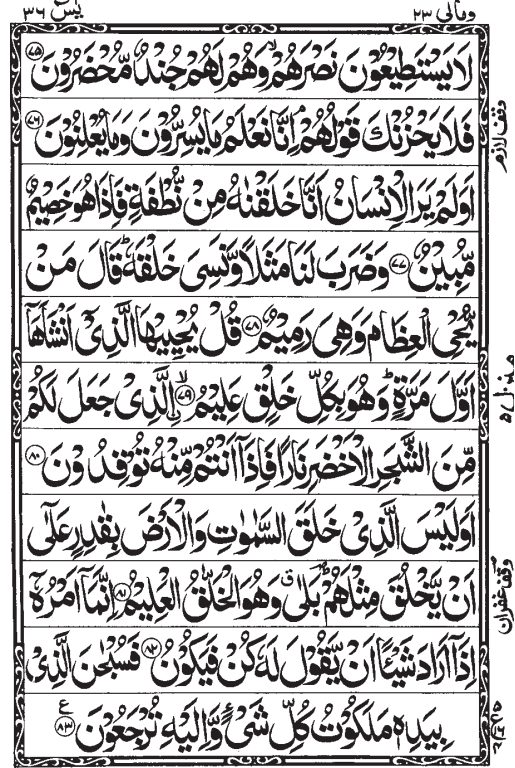 يٰسٓ ٣٦
ومالى ٢٣
لَا يَسْتَطِيْعُوْنَ نَصْرَهُمْ ۙ وَهُمْ لَهُمْ جُنْدٌ مُّحْضَرُوْنَ ﴿٧٥﴾
فَلَا يَحْزُنْكَ قَوْلُهُمْ ۘ اِنَّا نَعْلَمُ مَا يُسِرُّوْنَ وَمَا يُعْلِنُوْنَ ﴿٧٦﴾
اَوَلَمْ يَرَ الْاِنْسَانُ اَنَّا خَلَقْنٰهُ مِنْ نُّطْفَةٍ فَاِذَا هُوَ خَصِيْمٌ
مُّبِيْنٌ ﴿٧٧﴾ وَضَرَبَ لَنَا مَثَلًا وَّنَسِيَ خَلْقَهٗ ؕ قَالَ مَنْ
يُّحْيِ الْعِظَامَ وَهِيَ رَمِيْمٌ ﴿٧٨﴾ قُلْ يُحْيِيْهَا الَّذِيْٓ اَنْشَاَهَآ
اَوَّلَ مَرَّةٍ ؕ وَهُوَ بِكُلِّ خَلْقٍ عَلِيْمُ ۙ﴿٧٩﴾ ۨالَّذِيْ جَعَلَ لَكُمْ
مِّنَ الشَّجَرِ الْاَخْضَرِ نَارًا فَاِذَآ اَنْتُمْ مِّنْهُ تُوْقِدُوْنَ ﴿٨٠﴾
اَوَلَيْسَ الَّذِيْ خَلَقَ السَّمٰوٰتِ وَالْاَرْضَ بِقٰدِرٍ عَلٰٓى
اَنْ يَّخْلُقَ مِثْلَهُمْ ؕ بَلٰى ۗ وَهُوَ الْخَلّٰقُ الْعَلِيْمُ ﴿٨١﴾ اِنَّمَآ اَمْرُهٗٓ
اِذَآ اَرَادَ شَيْـًٔا اَنْ يَّقُوْلَ لَهٗ كُنْ فَيَكُوْنُ ﴿٨٢﴾ فَسُبْحٰنَ الَّذِيْ
بِيَدِهٖ مَلَكُوْتُ كُلِّ شَيْءٍ وَّاِلَيْهِ تُرْجَعُوْنَ ﴿٨٣﴾ ع
وقف لازم
منزل ٥
وقف غفران